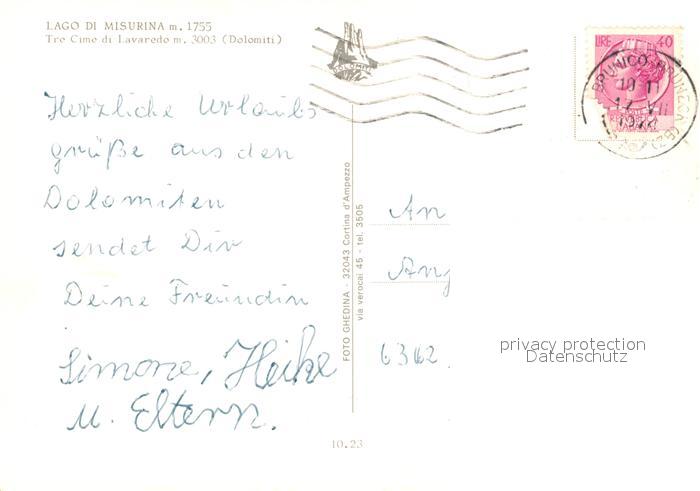 LAGO DI MISURINA m. 1755
Tre Cime di Lavaredo m. 3003 (Dolomiti)
Herzliche Urlaubs
grüße aus den
Dolomiten
sendet Dir
Deine Freundin
Simone, Heike
u. Eltern.
FOTO GHEDINA - 32043 Cortina d'Ampezzo
via verocai 45 - tel. 3505
10.23
DOLOMITI
LIRE 40
BRUNICO
An
6362
privacy protection
Datenschutz